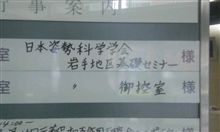 行事案内
室 日本姿勢科学学会 様
岩手地区基礎セミナー
室 〃 御控室 様